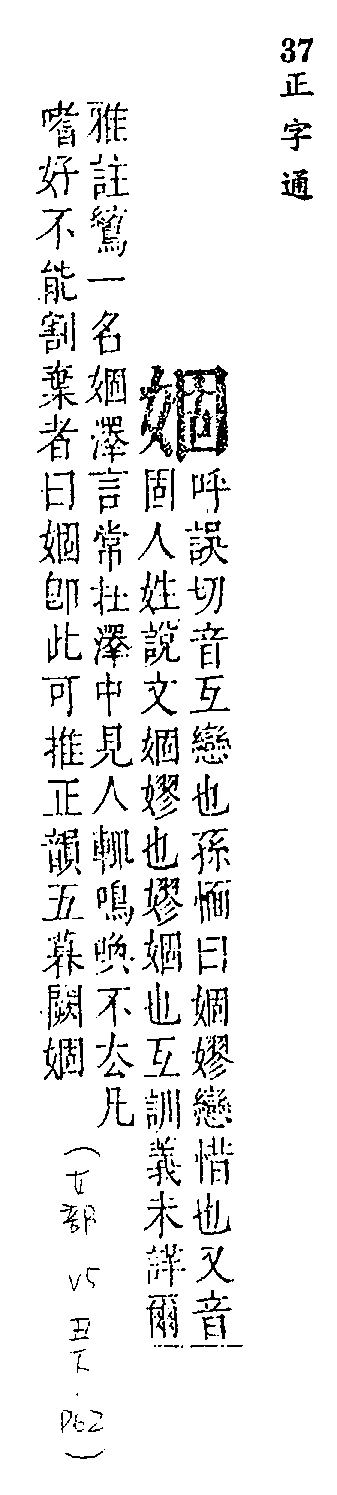 37
正字通
婟
呼誤切音互戀也孫愐曰婟嫪戀惜也又音
固人姓說文婟嫪也嫪婟也互訓義未詳爾
雅註鶭一名婟澤言常在澤中見人輒鳴喚不去凡
嗜好不能割棄者曰婟卽此可推正韻五暮闕婟
(女部 V5 丑下.P62)